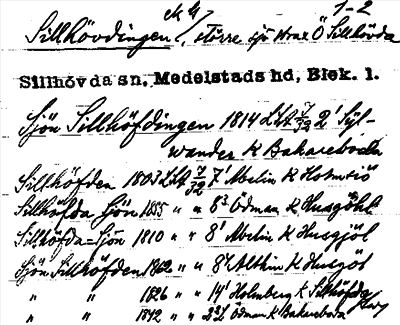 Ek 4 1-2
Sillhövdingen, större sjö strax Ö Sillhövda
Sillhövda sn, Medelstads hd, Blek. l.
Sjön Sillhöfdingen 1814 Lht 7/32 2' Syl-
wander K Bakareboda
Sillhöfden 1803 Lht 7/32 7' Abelin K
Sillhöfda Sjön 1855 " " 8' Ödman K Husgöhl
Sillhöfda=Sjön 1810 " " 8' Abelin K Husgjöl
Sjön Sillhöfden 1862 " " 8' Althin K Husgöl
" " 1826 " " 14' Holmberg K Sillhöfda
" " 1842 " " Ödman K Bakareboda